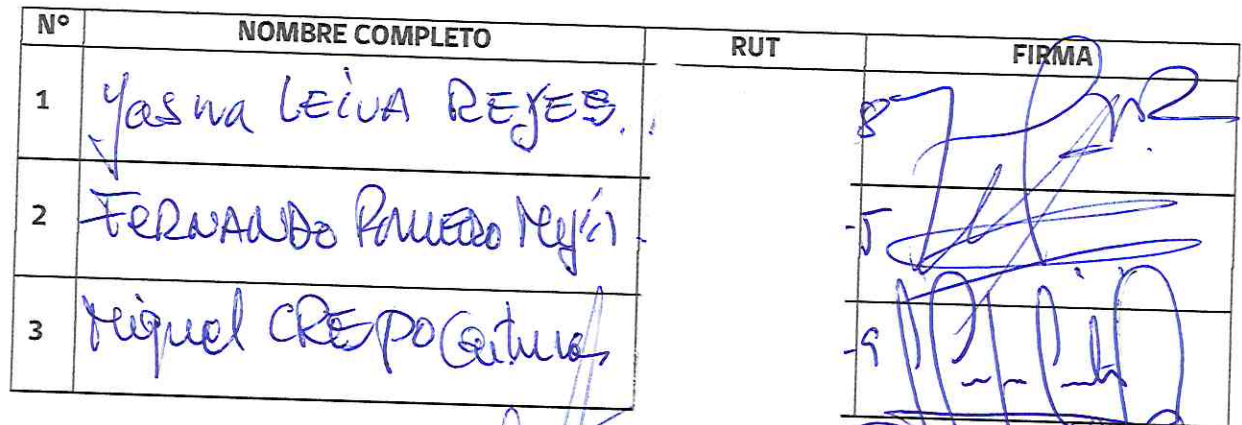 N° NOMBRE COMPLETO RUT FIRMA
1 Yasna LEIVA REYES. 8
2 FERNANDO ROMERO Mejía - -5
3 Miguel CRESPO -9